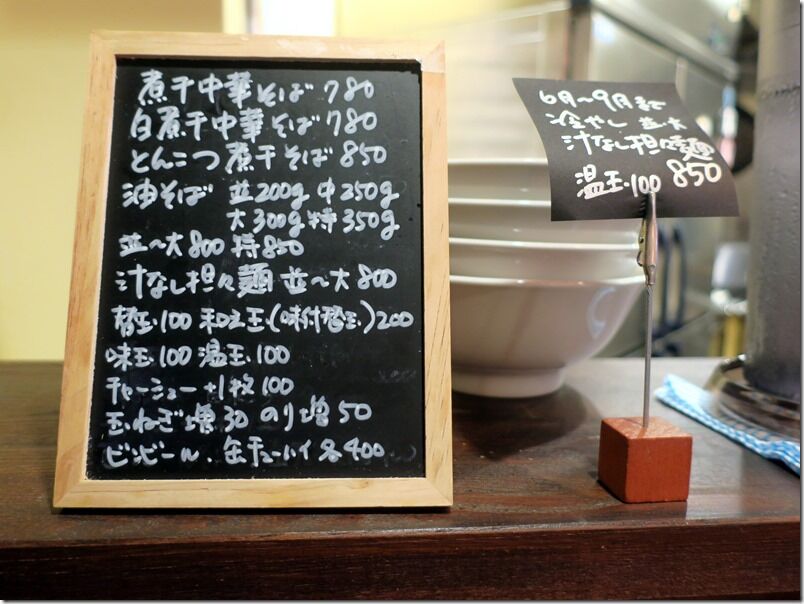 煮干中華そば 780
白煮干中華そば 780
とんこつ煮干そば 850
油そば 並200g 中250g
大300g 特350g
並〜大 800 特850
汁なし担々麺 並〜大 800
替玉 100 和え玉(味付替玉) 200
味玉 100 温玉 100
チャーシュー +1枚 100
玉ねぎ増 30 のり増 50
ビンビール、缶チューハイ 各400
6月〜9月まで
冷やし 並・大
汁なし担々麺
850
温玉・100